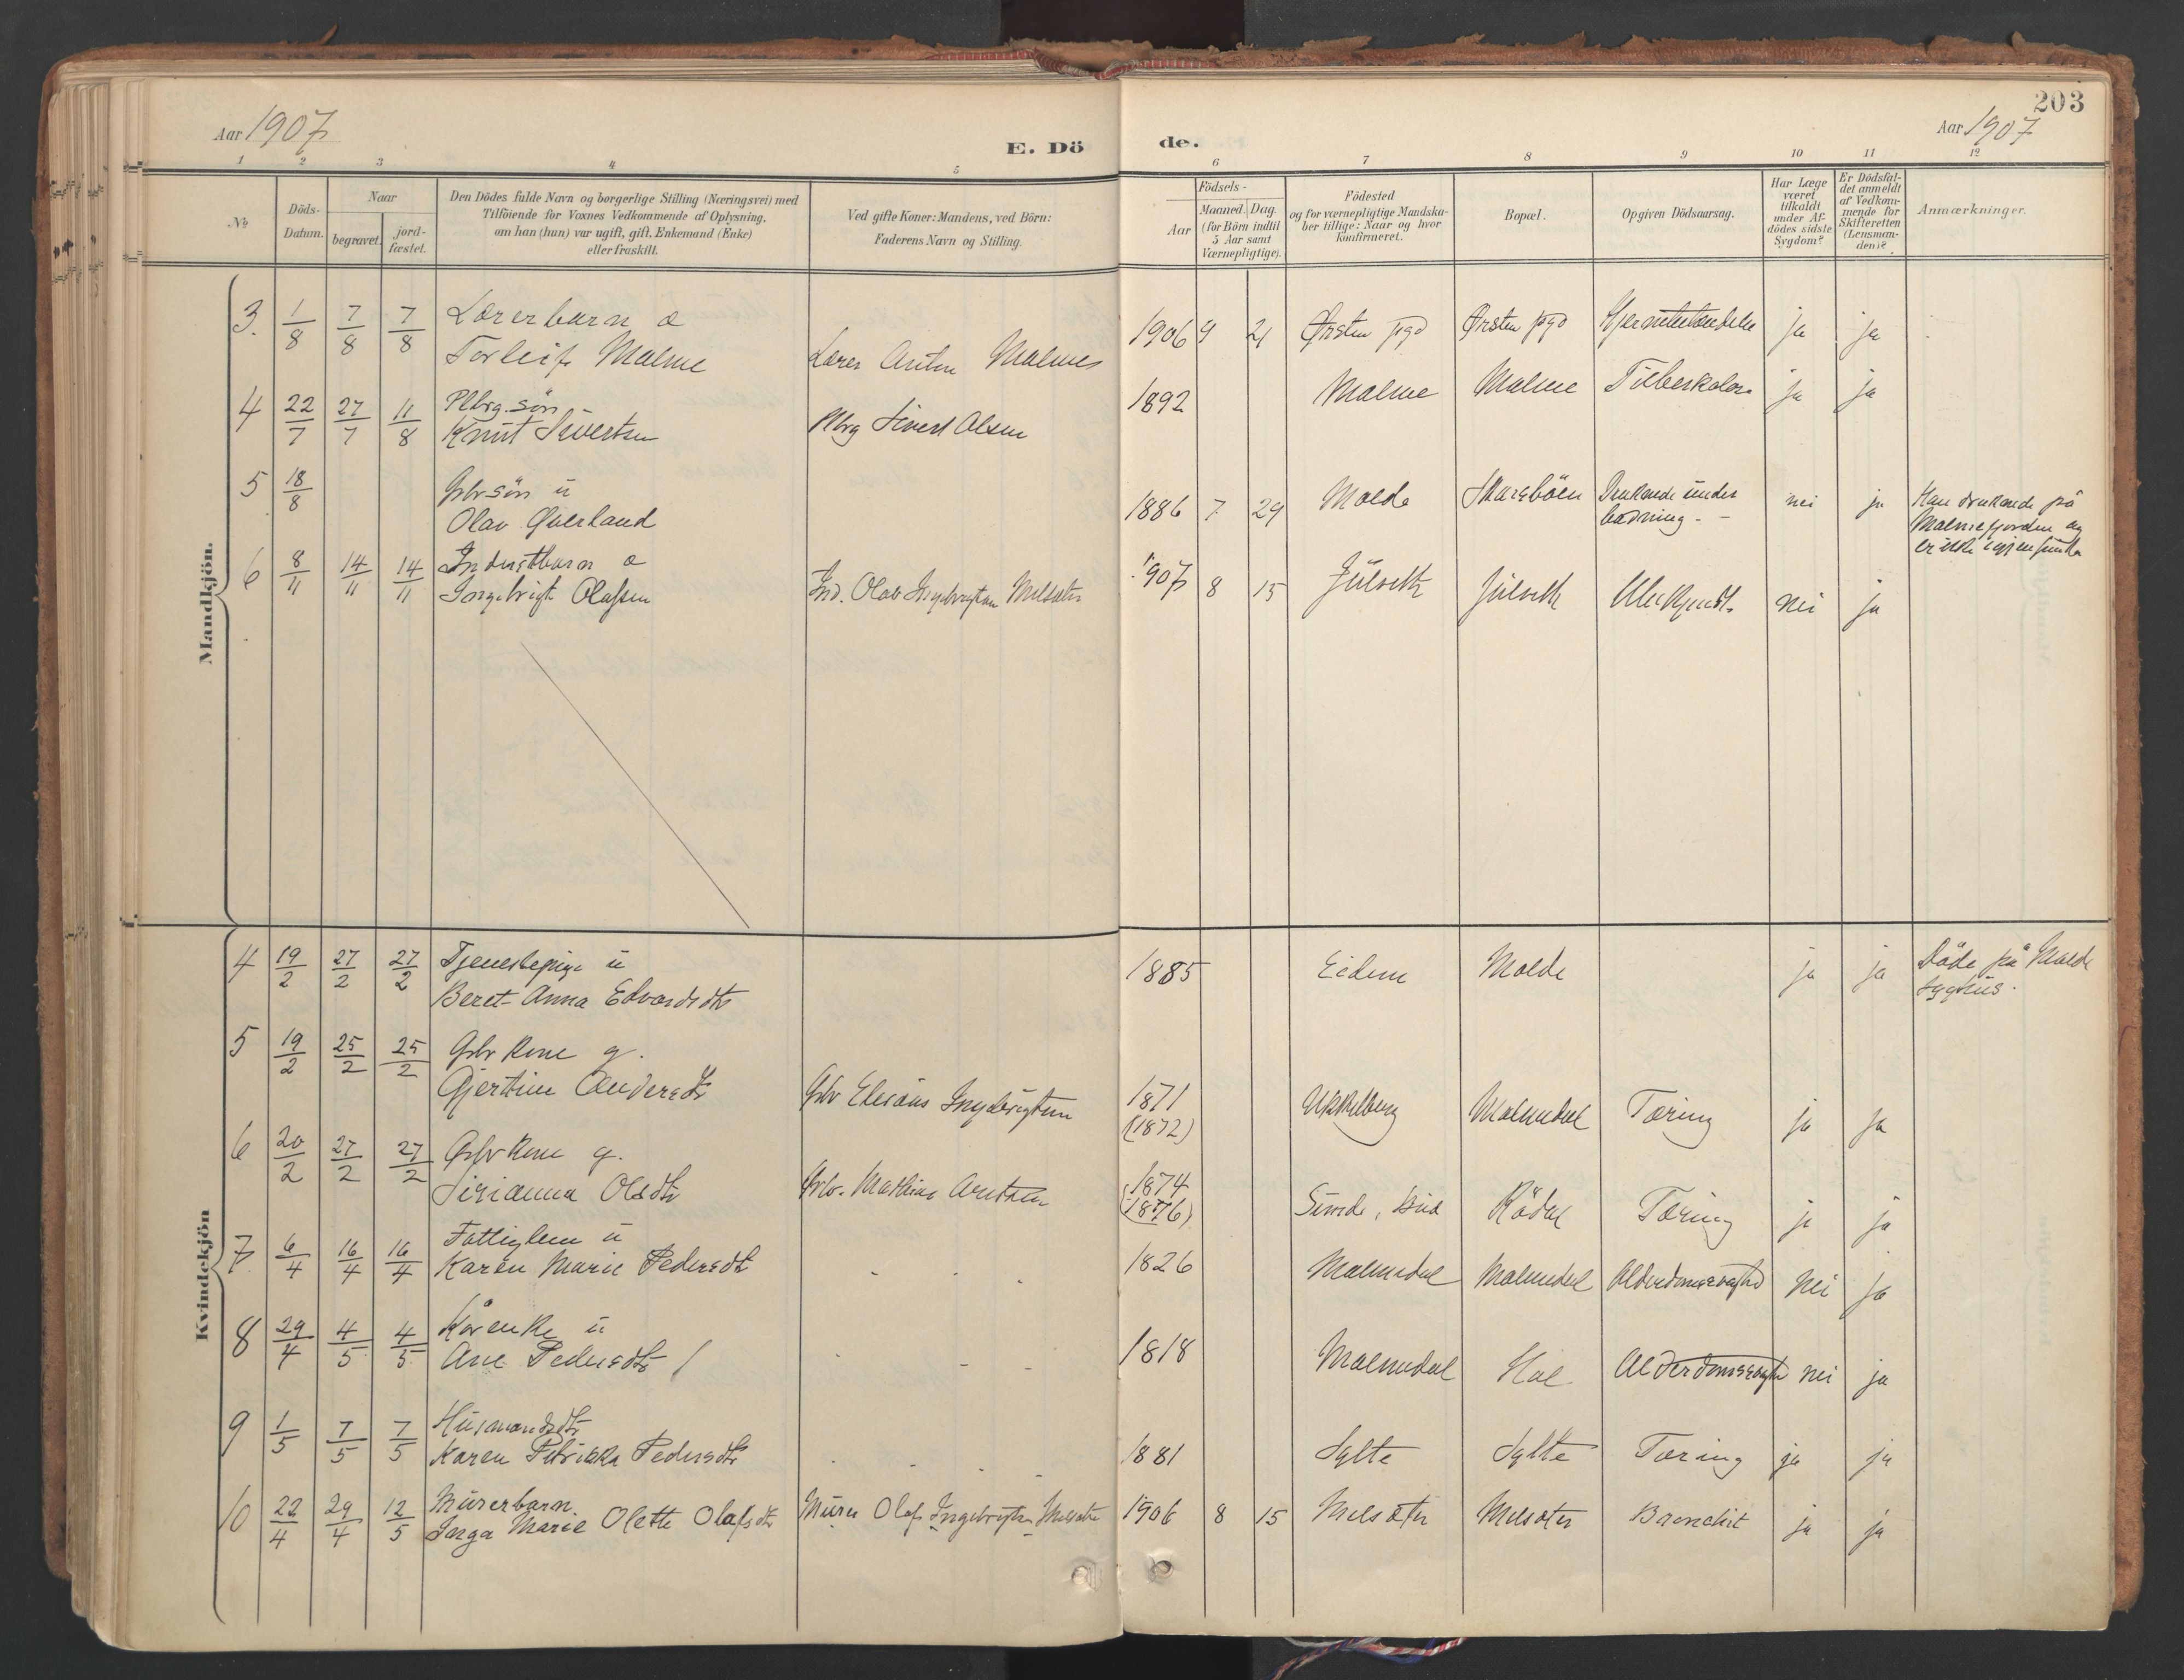 203
Aar 1907
E. Dö
de.
Aar 1907
1 2 3 4 5 6 7 8 9 10 11 12
No
Döds-
Datum.
Naar
begravet.
jord-
fæstet.
Den Dödes fulde Navn og borgerlige Stilling (Næringsvei) med
Tilföiende for Voxnes Vedkommende af Oplysning,
om han (hun) var ugift, gift, Enkemand (Enke)
eller fraskilt.
Ved gifte Koner: Mandens, ved Börn:
Faderens Navn og Stilling.
Födsels-
Aar
Maaned. Dag.
(for Börn indtil
5 Aar samt
Værnepligtige).
Födested
og for værnepligtige Mandska-
ber tillige: Naar og hvor
konfirmeret.
Bopæl.
Opgiven Dödsaarsag.
Har Læge
været
tilkaldt
under Af-
dödes sidste
Sygdom?
Er Dödsfal-
det anmeldt
af Vedkom-
mende for
Skifteretten
(Lensman-
den)?
Anmærkninger.
Mandkjön.
3. 1/8 7/8 7/8 Lærerbarn
Torleif Malme Lærer Anton Malmes 1906 9 21 Ørsten pgd Ørsten pgd ja ja
4 22/7 27/7 11/8 Plbrg. sön
Knut Sivertsen Plbrg Sivert Olsen 1892 Malme Malme Tuberkolos ja ja
5 18/8 Gbr sön u
Olav Qverland 1886 7 29 Molde Skarsböen Druknede under
badning. - nei ja Han druknede på
Malmefjorden og
er ikke igjenfunden
6 8/11 14/11 14/11 Industbarn
Ingebrigt Olafsen Ind. Olav Ingebrigtsen Melsæter 1907 8 15 Julseth Julseth Ubekjendt. nei ja
Kvindekjön
4 19/2 27/2 27/2 Tjenestepige u
Beret-Anna Edvardsdtr 1885 Eidem Molde ja ja Döde på Molde
sygehus.
5 19/2 25/2 25/2 Gbr kone g.
Gjertine Andersdtr Gbr Elesæus Ingebrigtsen 1871
(1872) Malmedal Tæring ja ja
6 20/2 27/2 27/2 Gbr kone g.
Sirianna Olsdtr Gbr. Mathias Arntsen 1874
(1876) Bud Rödal Tæring ja ja
7 6/4 16/4 16/4 Fattiglem u
Karen Marie Pedersdtr - - - 1826 Malmedal Malmedal Alderdomssvaghed nei ja
8 29/4 4/5 4/5 Kårenke u
Ane Pedersdtr - - - 1818 Malmedal Hol Alderdomssvaghed nei ja
9 1/5 7/5 7/5 Husmandsdtr
Karen Petrikka Pedersdtr - - - 1881 Sylte Sylte Tæring ja ja
10 22/4 29/4 12/5 Murerbarn.
Inga Marie Olette Olafsdtr Murer Olaf Ingebrigtsen Melsæter 1906 8 15 Melsæter Melsæter Bronchit ja ja